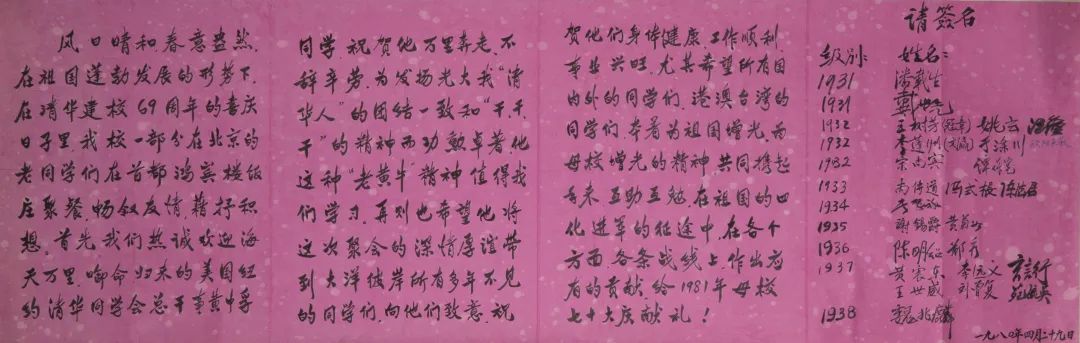 风日晴和春意盎然,
在祖国蓬勃发展的形势下,
在清华建校69周年的喜庆
日子里,我校一部分在北京的
老同学们在首都鸿宾楼饭
庄聚餐,畅叙友情,藉抒积
想。首先我们热诚欢迎海
天万里,啣命归来的美国纽
约清华同学会总干事黄中孚
同学,祝贺他万里奔走,不
辞辛劳,为发扬光大我“清
华人”的团结一致和“干,干,
干”的精神而功勋卓著,他
这种“老黄牛”精神值得我
们学习。再则也希望他将
这次聚会的深情厚谊带
到大洋彼岸所有多年不见
的同学们,向他们致意,祝
贺他们身体健康,工作顺利,
事业兴旺,尤其希望所有国
内外的同学们,港澳台湾的
同学们,本着为祖国增光,为
母校增光的精神,共同携起
手来,互助互勉,在祖国的四
化进军的征途中,在各个
方面,各条战线上,作出应
有的贡献,给1981年母校
七十大庆献礼!
请签名
级别: 姓名:
1931
1931
1932 王树芳 姚云
1932 李道州 于涤川
1932 宗志宾
1933
1934
1935 谢锡爵
1936 陈明绍 郁彦
1937 吴宗岱 李恒义
王世威 刘曾复
1938 魏兆麟
一九八〇年四月二十九日